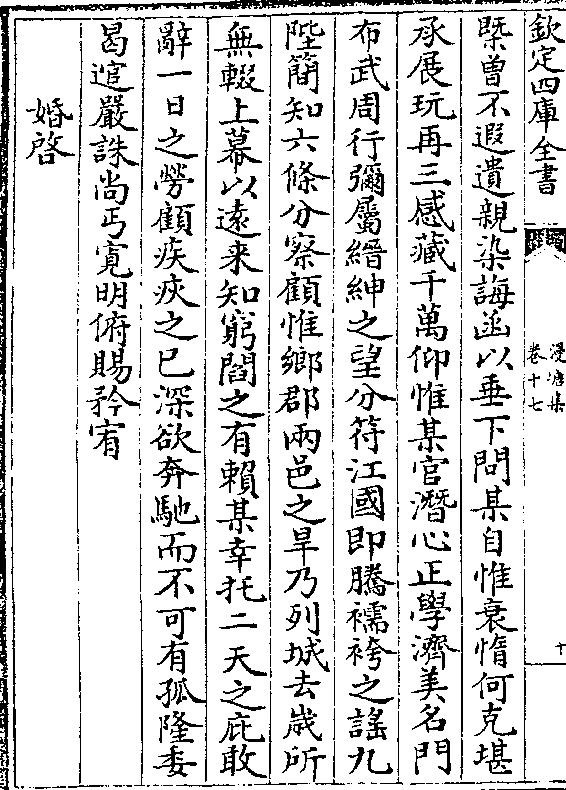 欽定四庫全書
漫塘集
卷十七
十
槩曾不遐遺親染誨函以垂下問某自惟衰惰何克堪
承展玩再三感藏千萬仰惟某官潛心正學濟美名門
布武周行彌屬縉紳之望分符江國即騰襦袴之謡九
陛簡知六條分察顧惟鄉郡兩邑之旱乃列城去歳所
無輟上幕以遠来知窮閻之有賴某幸托二天之庇敢
辭一日之勞顧疾疢之已深欲奔馳而不可有孤隆委
曷逭嚴誅尚丐寛明俯賜矜宥
婚啓